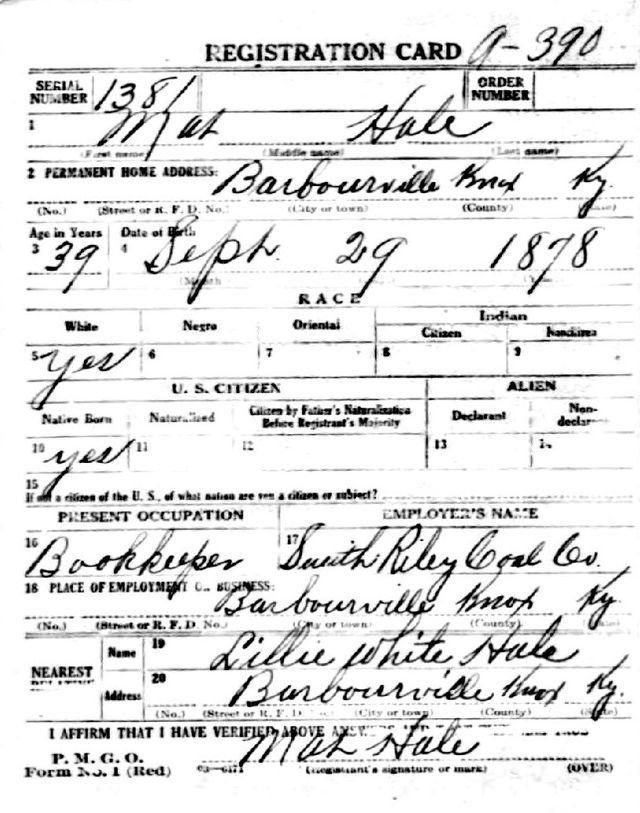 REGISTRATION CARD A-390
SERIAL NUMBER 1381 ORDER NUMBER
1 Mat Hale
(First name) (Middle name) (Last name)
2 PERMANENT HOME ADDRESS: Barbourville Knox Ky.
(No.) (Street or R. F. D. No.) (City or town) (County) (State)
Age in Years Date of Birth
3 39 4 Sept. 29 1878
(Month
RACE
White Negro Oriental Indian
Citizen Noncitizen
5 Yes 6 7 8 9
U. S. CITIZEN ALIEN
Native Born Naturalized Citizen by Father's Naturalization Before Registrant's Majority Declarant Non-declarant
10 yes 11 12 13 14
15
If not a citizen of the U. S., of what nation are you a citizen or subject?
PRESENT OCCUPATION EMPLOYER'S NAME
16 Bookkeeper 17 Smith Riley Coal Co.
18 PLACE OF EMPLOYMENT OR BUSINESS:
Barbourville Knox Ky
(No.) (Street or R. F. D. No.) (City or town) (County)
NEAREST RELATIVE Name 19 Lillie White Hale
Address 20 Barbourville Knox Ky.
(No.) (Street or R. F. D. (City or town) (County) (State)
I AFFIRM THAT I HAVE VERIFIED ABOVE
Mat Hale
P. M. G. O.
Form No. 1 (Red) (Registrant's signature or mark) (OVER)